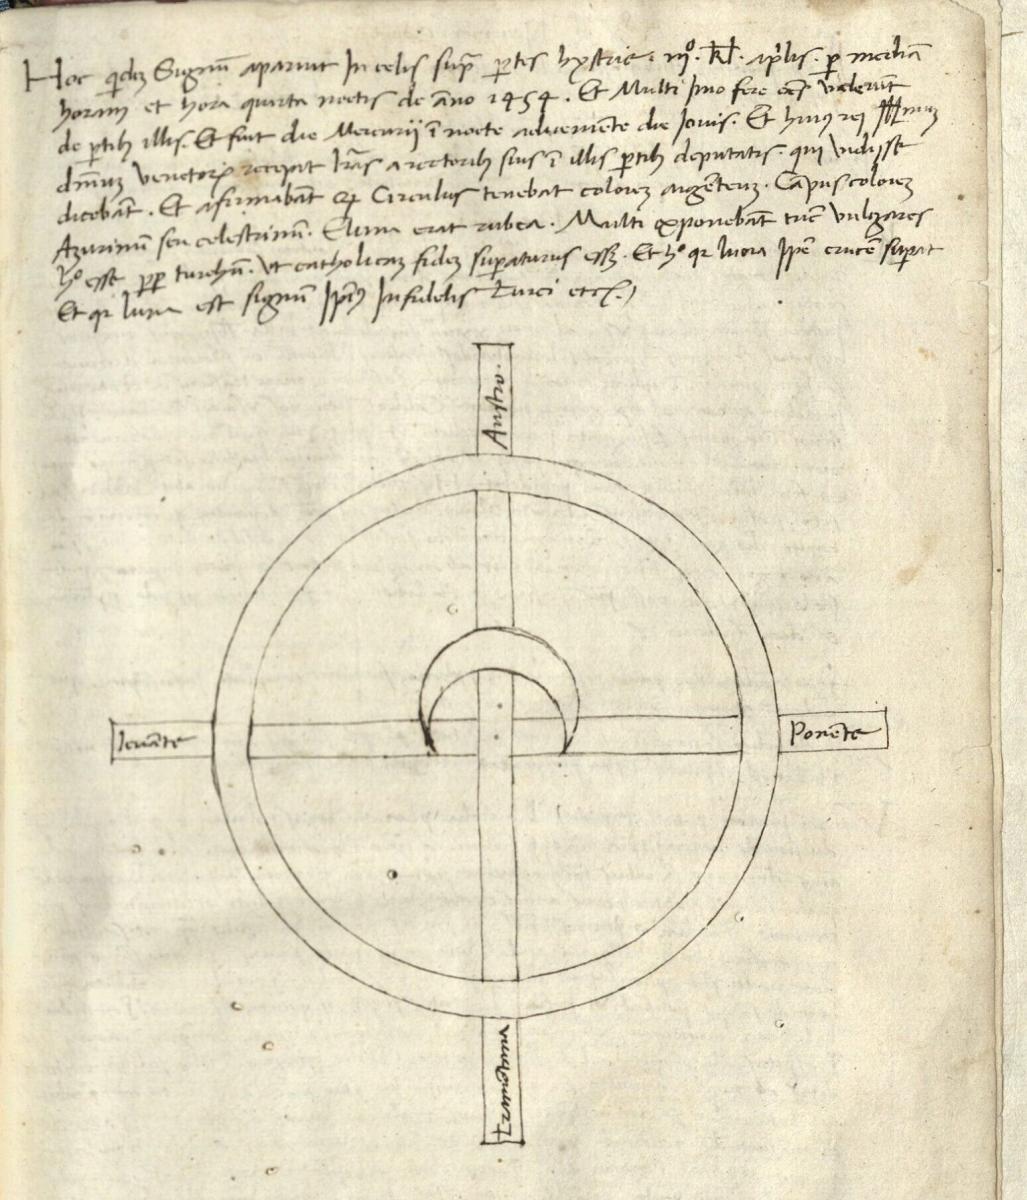 Hoc qdez Signū aparuit In celis sup̄ ptes hystrie. iijº. kl. ap̄lis. p mediā
horam et hora quarta noctis de āno 1454. Et Multi Imo fere viderūt
de ptib illis. Et fuit die Mercurij ī nocte adveniēte die Jovis. Et huius rei Illmuz
dn̄uz venetoꝝ recepat lr̄as a rectorib suis ī illis ptib deputatis. qui vidisse
dicebāt. Et afirmabāt qƺ Circulus tenebat colorez argēteuz. Cāpus colorez
Azurinū seu celestrinū. E luna erat rubea. Multi exponebāt tūc vulgares
hº esse pp turchū. ut catholicaz fidez supaturus essz. Et hº qr luna Ipē crucē supat
Et qr luna est signū Infidelis Turci etc.
Austro.
levāte
Ponēte
Tramōtana